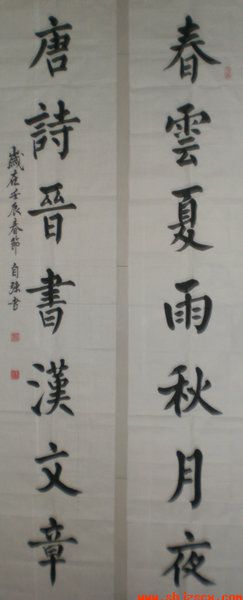 春雲夏雨秋月夜
唐詩晉書漢文章
歲在壬辰春節自強書
www.shjzscx.com